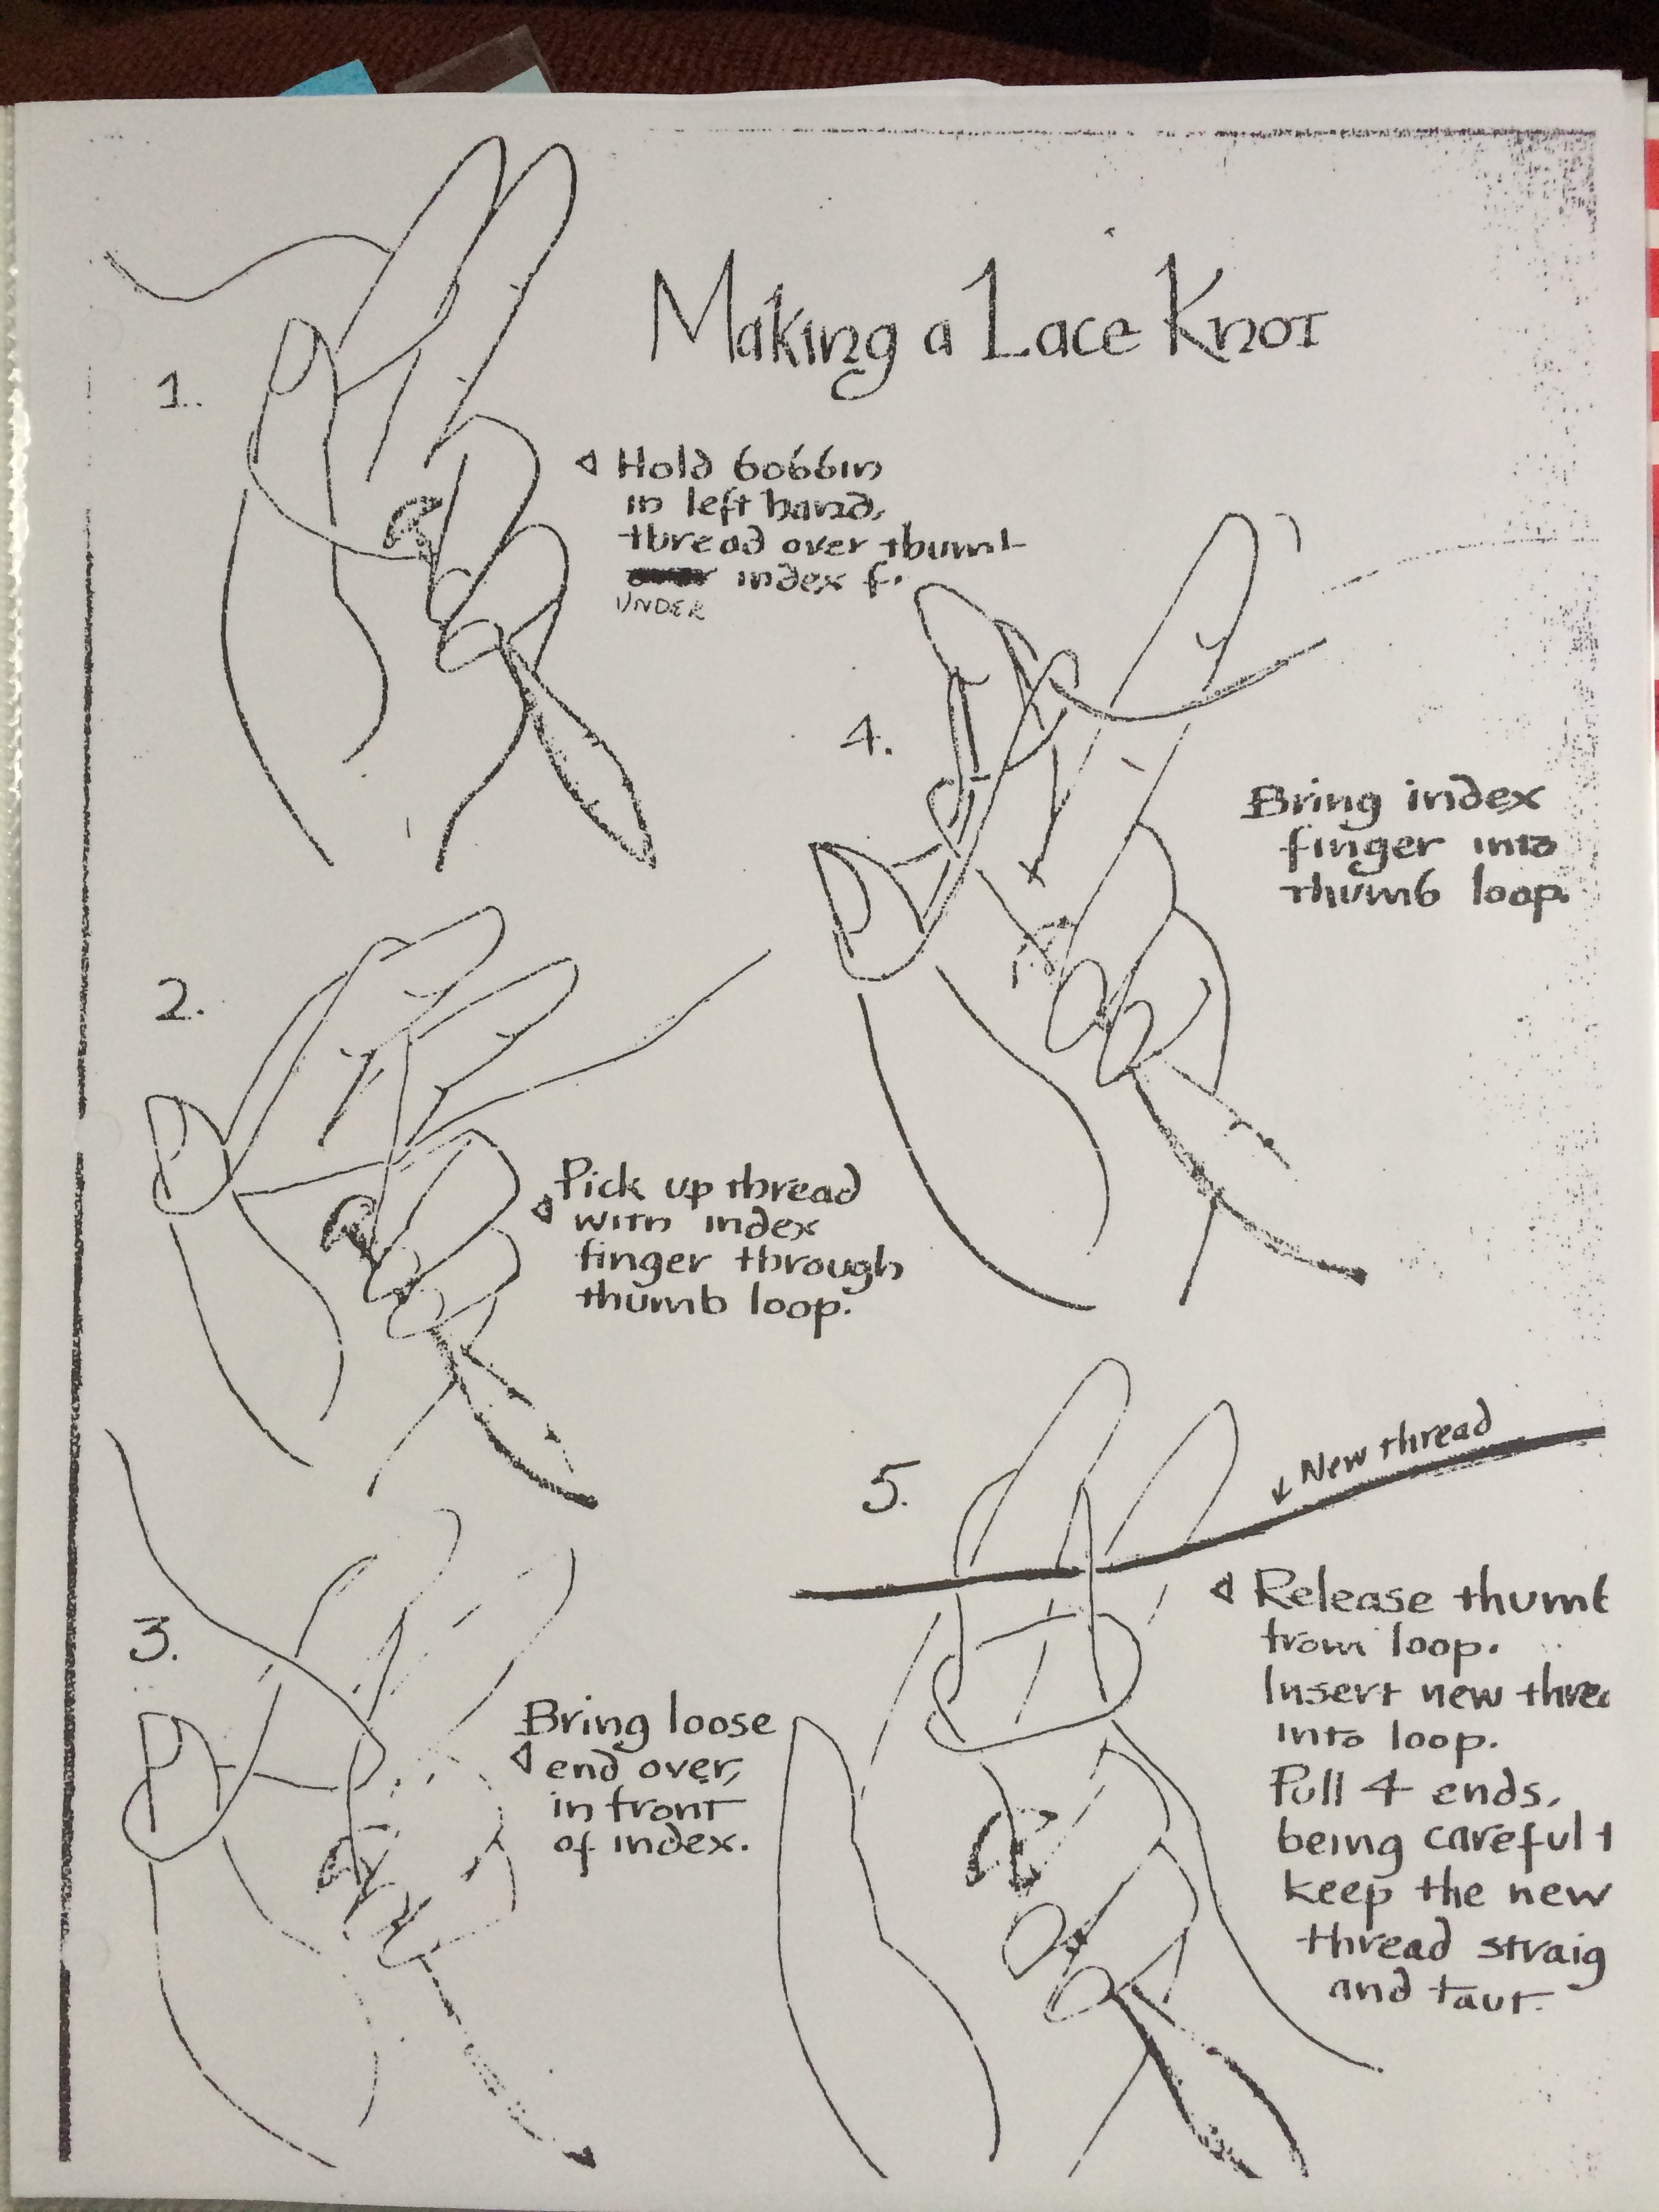 Making a Lace Knot
1.
Hold bobbin
in left hand,
thread over thumb
index f.
UNDER
2.
Pick up thread
with index
finger through
thumb loop.
3.
Bring loose
end over,
in front
of index.
4.
Bring index
finger into
thumb loop.
5.
New thread
Release thumb
from loop.
Insert new threa
into loop.
Pull 4 ends,
being careful t
keep the new
thread straig
and taut.